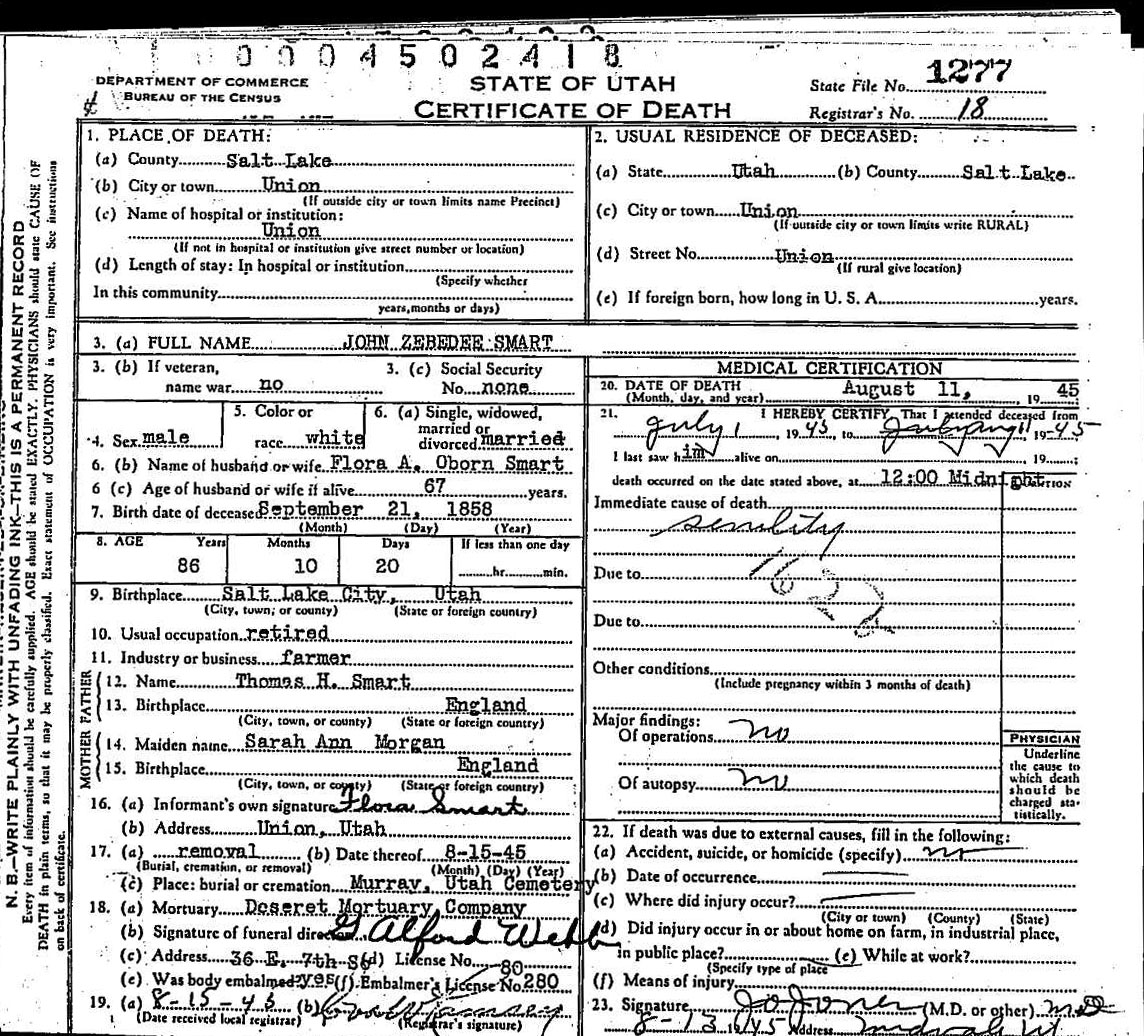 0 0 0 4 5 0 2 4 1 8
DEPARTMENT OF COMMERCE
BUREAU OF THE CENSUS
STATE OF UTAH
CERTIFICATE OF DEATH
State File No. 1277
Registrar's No. 18
1. PLACE OF DEATH:
(a) County Salt Lake
(b) City or town Union
(If outside city or town limits name Precinct)
(c) Name of hospital or institution:
Union
(If not in hospital or institution give street number or location)
(d) Length of stay: In hospital or institution
(Specify whether
In this community
years, months or days)
2. USUAL RESIDENCE OF DECEASED:
(a) State Utah (b) County Salt Lake
(c) City or town Union
(If outside city or town limits write RURAL)
(d) Street No. Union
(If rural give location)
(e) If foreign born, how long in U. S. A. years.
3. (a) FULL NAME JOHN ZEBEDEE SMART
3. (b) If veteran,
name war no
3. (c) Social Security
No. none
4. Sex male
5. Color or
race white
6. (a) Single, widowed,
married or
divorced married
6. (b) Name of husband or wife Flora A. Oborn Smart
6 (c) Age of husband or wife if alive 67 years.
7. Birth date of deceased September 21, 1858
(Month) (Day) (Year)
8. AGE Years Months Days If less than one day
86 10 20 hr. min.
9. Birthplace Salt Lake City, Utah
(City, town, or county) (State or foreign country)
10. Usual occupation retired
11. Industry or business farmer
FATHER
12. Name Thomas H. Smart
13. Birthplace England
(City, town, or county) (State or foreign country)
MOTHER
14. Maiden name Sarah Ann Morgan
15. Birthplace England
(City, town, or county) (State or foreign country)
16. (a) Informant's own signature Flora Smart
(b) Address Union, Utah
17. (a) removal (b) Date thereof 8-15-45
(Burial, cremation, or removal) (Month) (Day) (Year)
(c) Place: burial or cremation Murray, Utah Cemetery
18. (a) Mortuary Deseret Mortuary Company
(b) Signature of funeral director G Alford Webb
(c) Address 36 E. 7th So (d) License No. 80
(e) Was body embalmed? yes (f) Embalmer's License No. 280
19. (a) 8-15-45 (b)
(Date received local registrar) (Registrar's signature)
MEDICAL CERTIFICATION
20. DATE OF DEATH August 11, 19 45
(Month, day, and year)
21. I HEREBY CERTIFY, That I attended deceased from
July 1 1945 to Aug 11 1945
I last saw him alive on 19
death occurred on the date stated above, at 12:00 Midnight
Immediate cause of death
senility
Due to
162b
Due to
Other conditions
(Include pregnancy within 3 months of death)
Major findings:
Of operations no
Of autopsy no
PHYSICIAN
Underline
the cause to
which death
should be
charged sta-
tistically.
22. If death was due to external causes, fill in the following:
(a) Accident, suicide, or homicide (specify) no
(b) Date of occurrence
(c) Where did injury occur?
(City or town) (County) (State)
(d) Did injury occur in or about home on farm, in industrial place,
in public place? (e) While at work?
(Specify type of place
(f) Means of injury
23. Signature J O Jones (M.D. or other) MD
8-13 1945 Address
N. B.—WRITE PLAINLY WITH UNFADING INK—THIS IS A PERMANENT RECORD
Every item of information should be carefully supplied. AGE should be stated EXACTLY. PHYSICIANS should state CAUSE OF
DEATH in plain terms, so that it may be properly classified. Exact statement of OCCUPATION is very important. See instructions
on back of certificate.